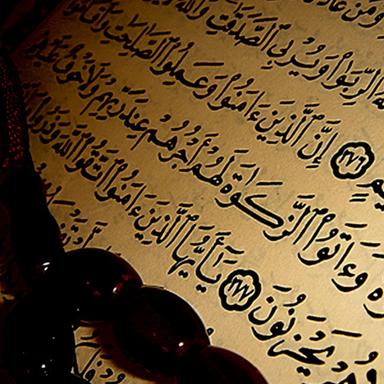 وَمَنْ عَادَ
ٱلرِّبَوٰا۟ وَيُرْبِى ٱلصَّدَقَٰتِ وَٱللَّهُ
﴿٢٧٦﴾ إِنَّ ٱلَّذِينَ ءَامَنُوا۟ وَعَمِلُوا۟ ٱلصَّٰلِحَٰتِ وَأَقَامُوا۟
وَءَاتَوُا۟ ٱلزَّكَوٰةَ لَهُمْ أَجْرُهُمْ عِندَ رَبِّهِمْ وَلَا خَوْفٌ
يَحْزَنُونَ ﴿٢٧٧﴾ يَٰٓأَيُّهَا ٱلَّذِينَ ءَامَنُوا۟ ٱتَّقُوا۟ ٱللَّهَ وَذَرُوا۟